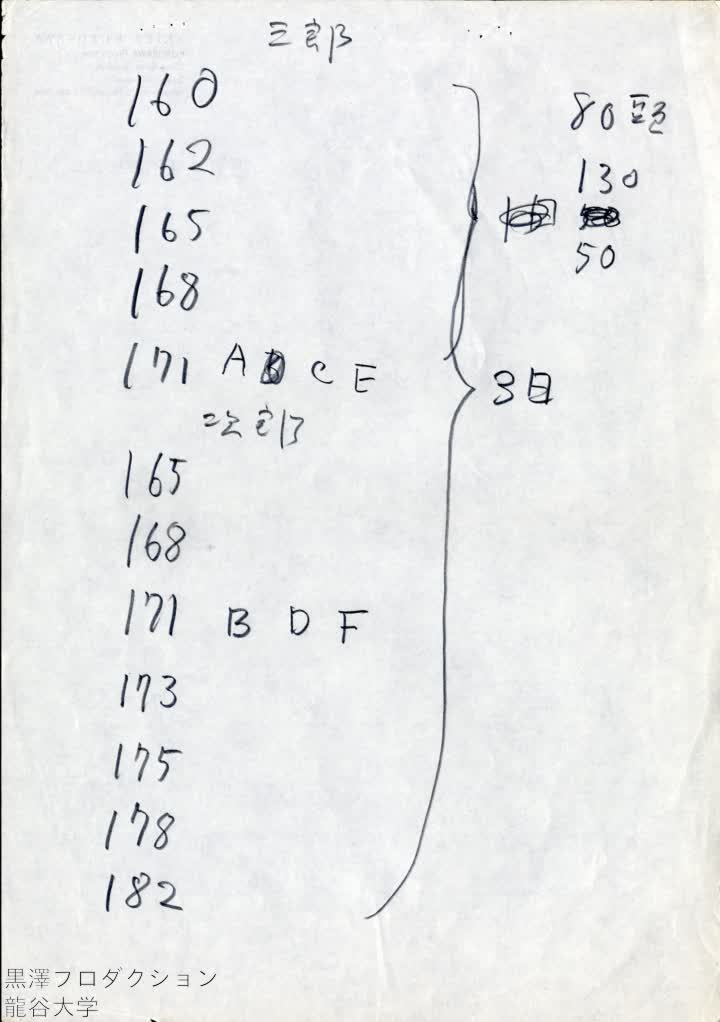 三郎
160
162
165
168
171 A C E
次郎
165
168
171 B D F
173
175
178
182
80頭
130
50
3日
黒澤プロダクション
龍谷大学